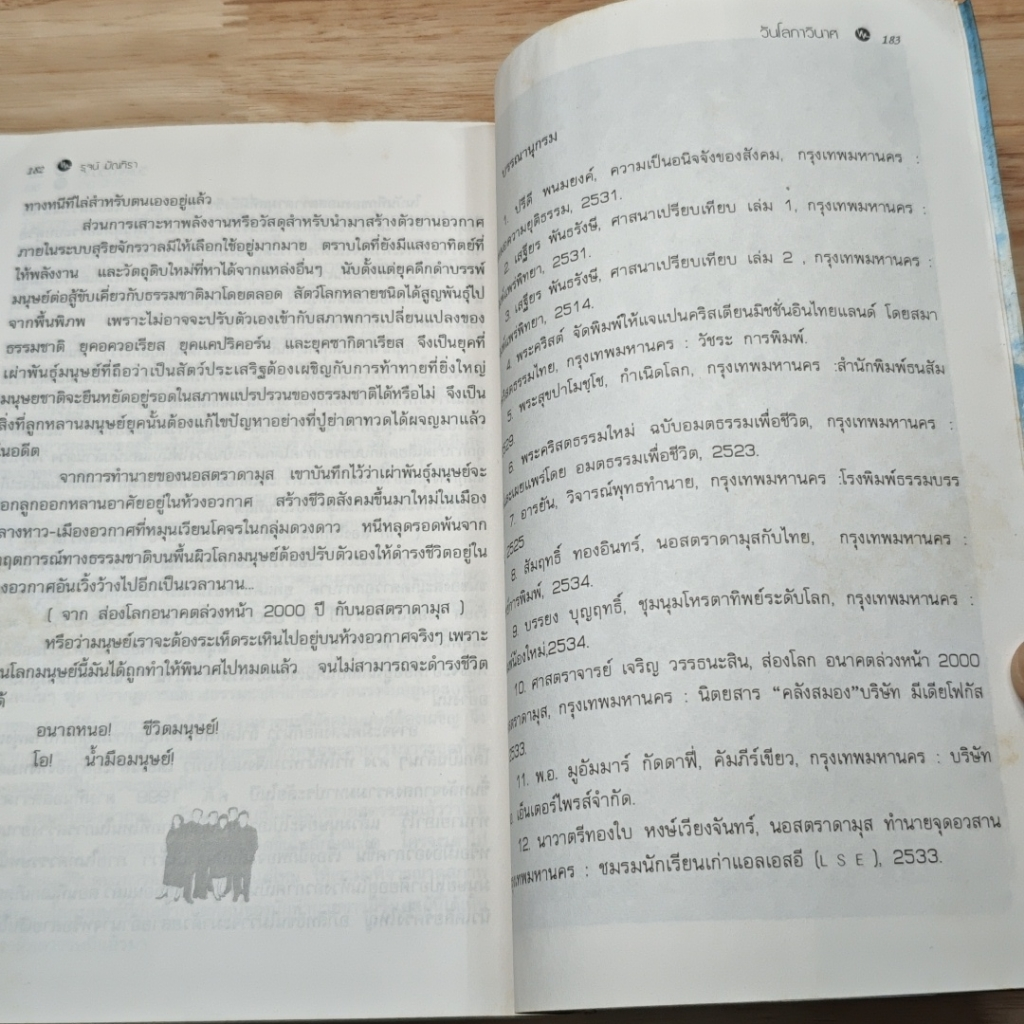 182 รุจน์ มัณฑิรา
ทางหนีทีไล่สำหรับตนเองอยู่แล้ว
ส่วนการเสาะหาพลังงานหรือวัสดุสำหรับนำมาสร้างตัวยานอวกาศ
ภายในระบบสุริยจักรวาลมีให้เลือกใช้อยู่มากมาย ตราบใดที่ยังมีแสงอาทิตย์ที่
ให้พลังงาน และวัตถุดิบใหม่ที่หาได้จากแหล่งอื่นๆ นับตั้งแต่ยุคดึกดำบรรพ์
มนุษย์ต่อสู้ขับเคี่ยวกับธรรมชาติมาโดยตลอด สัตว์โลกหลายชนิดได้สูญพันธุ์ไป
จากพื้นพิภพ เพราะไม่อาจจะปรับตัวเองเข้ากับสภาพการเปลี่ยนแปลงของ
ธรรมชาติ ยุคอควอเรียส ยุคแคปริคอร์น และยุคซากิตาเรียส จึงเป็นยุคที่
เผ่าพันธุ์มนุษย์ที่ถือว่าเป็นสัตว์ประเสริฐต้องเผชิญกับการท้าทายที่ยิ่งใหญ่
มนุษยชาติจะยืนหยัดอยู่รอดในสภาพแปรปรวนของธรรมชาติได้หรือไม่ จึงเป็น
สิ่งที่ลูกหลานมนุษย์ยุคนั้นต้องแก้ไขปัญหาอย่างที่ปู่ย่าตาทวดได้ผจญมาแล้ว
ในอดีต
จากการทำนายของนอสตราดามุส เขาบันทึกไว้ว่าเผ่าพันธุ์มนุษย์จะ
ออกลูกออกหลานอาศัยอยู่ในห้วงอวกาศ สร้างชีวิตสังคมขึ้นมาใหม่ในเมือง
ลางหาว-เมืองอวกาศที่หมุนเวียนโคจรในกลุ่มดวงดาว หนีหลุดรอดพ้นจาก
ฤตการณ์ทางธรรมชาติบนพื้นผิวโลกมนุษย์ต้องปรับตัวเองให้ดำรงชีวิตอยู่ใน
งอวกาศอันเวิ้งว้างไปอีกเป็นเวลานาน...
( จาก ส่องโลกอนาคตล่วงหน้า 2000 ปี กับนอสตราดามุส )
หรือว่ามนุษย์เราจะต้องระเห็ดระเหินไปอยู่บนห้วงอวกาศจริงๆ เพราะ
นโลกมนุษย์นี้มันได้ถูกทำให้พินาศไปหมดแล้ว จนไม่สามารถจะดำรงชีวิต
ด้
อนาถหนอ! ชีวิตมนุษย์!
โอ! น้ำมือมนุษย์!
วันโลกาวินาศ 183
บรรณานุกรม
1. ปรีดี พนมยงค์, ความเป็นอนิจจังของสังคม, กรุงเทพมหานคร :
ความยุติธรรม, 2531.
2. เสฐียร พันธรังษี, ศาสนาเปรียบเทียบ เล่ม 1, กรุงเทพมหานคร :
แพร่พิทยา, 2531.
3. เสฐียร พันธรังษี, ศาสนาเปรียบเทียบ เล่ม 2 , กรุงเทพมหานคร :
แพร่พิทยา, 2514.
4. พระคริสต์ จัดพิมพ์ให้แจแปนคริสเตียนมิชชั่นอินไทยแลนด์ โดยสมา
คริสตธรรมไทย, กรุงเทพมหานคร : วัชระ การพิมพ์.
5. พระสุขปาโมชุโช, กำเนิดโลก, กรุงเทพมหานคร :สำนักพิมพ์ธนสัม
2529.
6. พระคริสตธรรมใหม่ ฉบับอมตธรรมเพื่อชีวิต, กรุงเทพมหานคร :
เผยแพร่โดย อมตธรรมเพื่อชีวิต, 2523.
7. อารยัน, วิจารณ์พุทธทำนาย, กรุงเทพมหานคร :โรงพิมพ์ธรรมบรร
2525
8. สัมฤทธิ์ ทองอินทร์, นอสตราดามุสกับไทย, กรุงเทพมหานคร :
การพิมพ์, 2534.
9. บรรยง บุญฤทธิ์, ชุมนุมโหรตาทิพย์ระดับโลก, กรุงเทพมหานคร :
เมืองใหม่,2534.
10. ศาสตราจารย์ เจริญ วรรธนะสิน, ส่องโลก อนาคตล่วงหน้า 2000
สตราดามุส, กรุงเทพมหานคร : นิตยสาร “คลังสมอง”บริษัท มีเดียโฟกัส
2533.
11. พ.อ. มูอัมมาร์ กัดดาฟี่, คัมภีร์เขียว, กรุงเทพมหานคร : บริษัท
เอ็นเตอร์ไพรส์จำกัด.
12. นาวาตรีทองใบ หงษ์เวียงจันทร์, นอสตราดามุส ทำนายจุดอวสาน
เทพมหานคร : ชมรมนักเรียนเก่าแอลเอสอี (L S E), 2533.